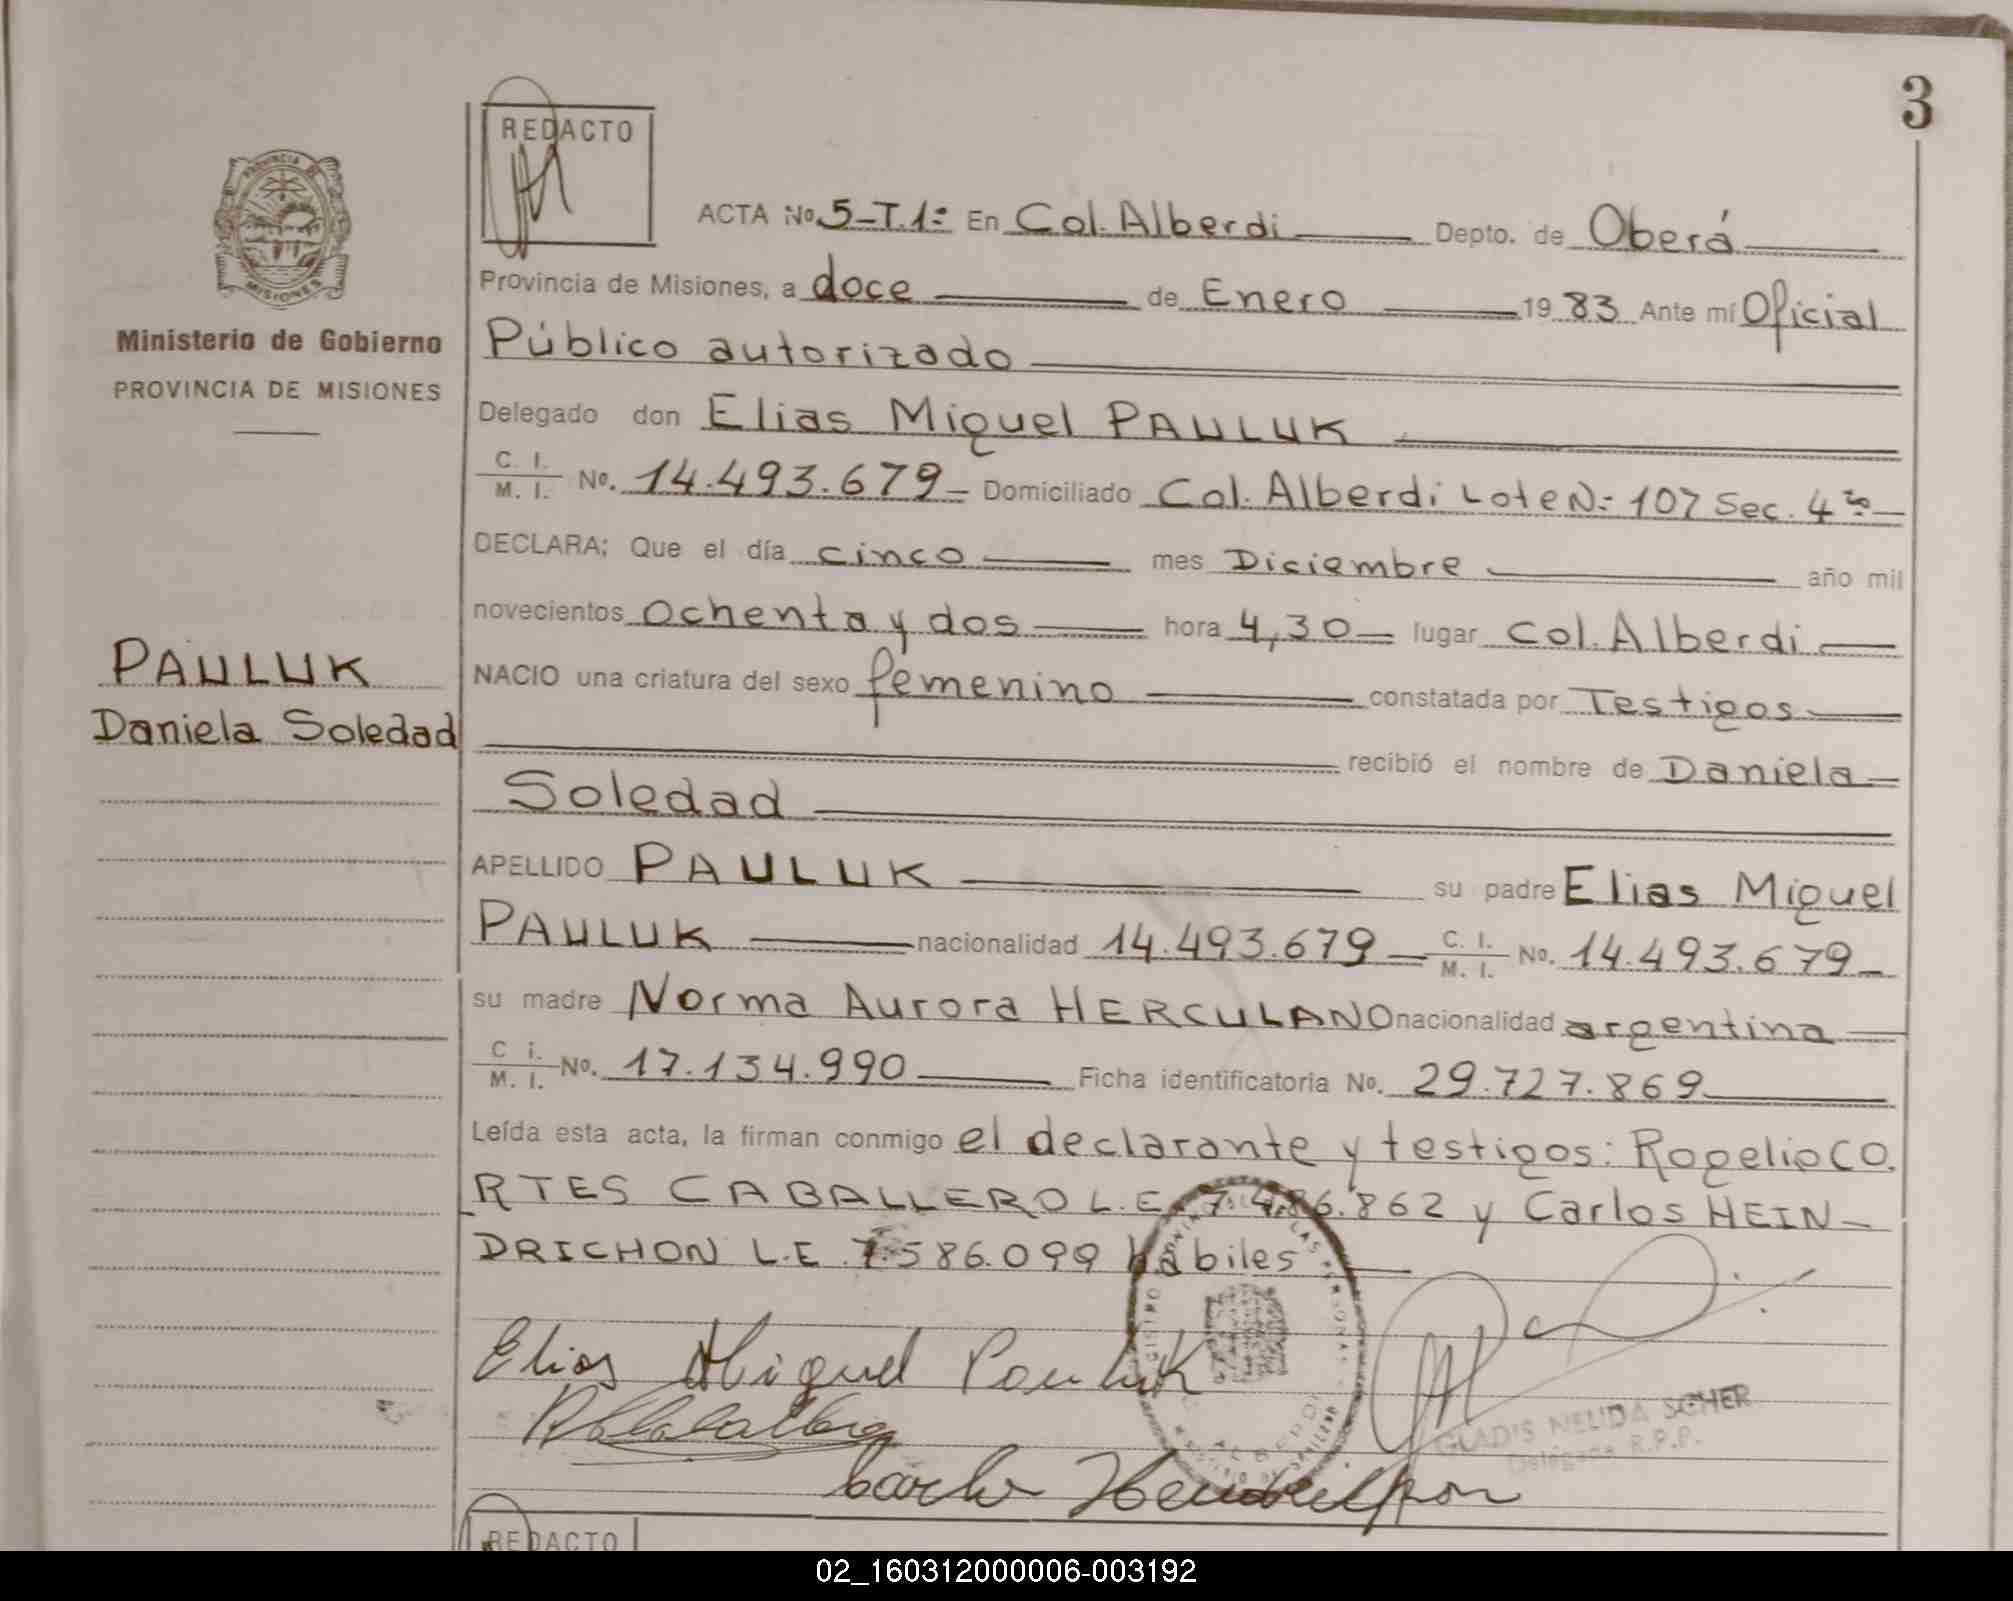 3
REDACTO
PROVINCIA DE
MISIONES
Ministerio de Gobierno
PROVINCIA DE MISIONES
PAULUK
Daniela Soledad
ACTA No. 5-T.1º En Col. Alberdi Depto. de Oberá
Provincia de Misiones, a doce de Enero 1983 Ante mí Oficial
Público autorizado
Delegado don Elias Miguel PAULUK
C. I. / M. I. No. 14.493.679 - Domiciliado Col. Alberdi Lote Nº 107 Sec. 4ta
DECLARA: Que el día cinco mes Diciembre año mil
novecientos ochenta y dos hora 4,30 lugar Col. Alberdi
NACIO una criatura del sexo femenino constatada por Testigos
recibió el nombre de Daniela
Soledad
APELLIDO PAULUK su padre Elias Miguel
PAULUK nacionalidad 14.493.679 C. I. / M. I. No. 14.493.679
su madre Norma Aurora HERCULANO nacionalidad argentina
C i. / M. I. No. 17.134.990 Ficha identificatoria No. 29.727.869
Leída esta acta, la firman conmigo el declarante y testigos: Rogelio CO.
RTES CABALLERO L.E. 7.486.862 y Carlos HEIN-
DRICHON L.E 7.586.099 hábiles
Elias Miguel Pauluk
GLADIS NELIDA SCHER
Delegada R.P.P.
REDACTO
02_160312000006-003192